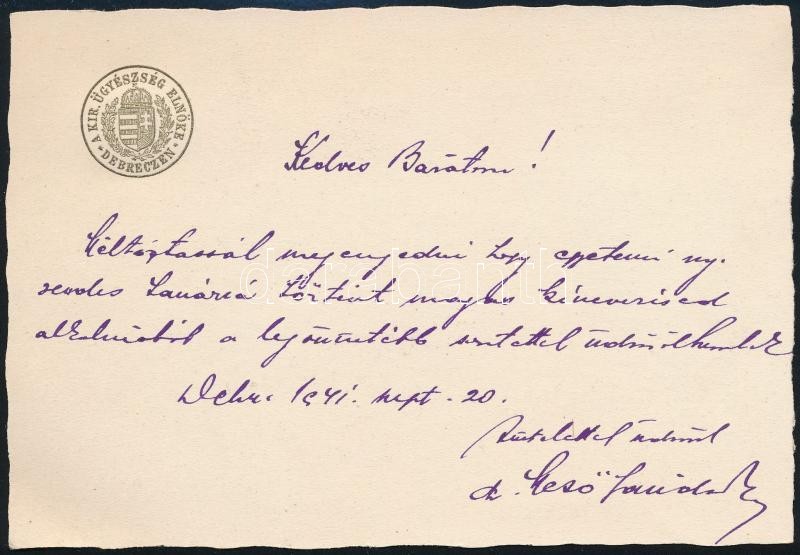 A KIR. ÜGYÉSZSÉG ELNÖKE
DEBRECZEN
Kedves Barátom!
Méltóztassál megengedni hogy egyetemi ny.
rendes tanárrá történt magas kinevezésed
alkalmából a legőszintébb szeretettel üdvözölhesselek
Debr. 1941. szept. 20.
Tisztelettel üdvözöl
dr.
darabanth